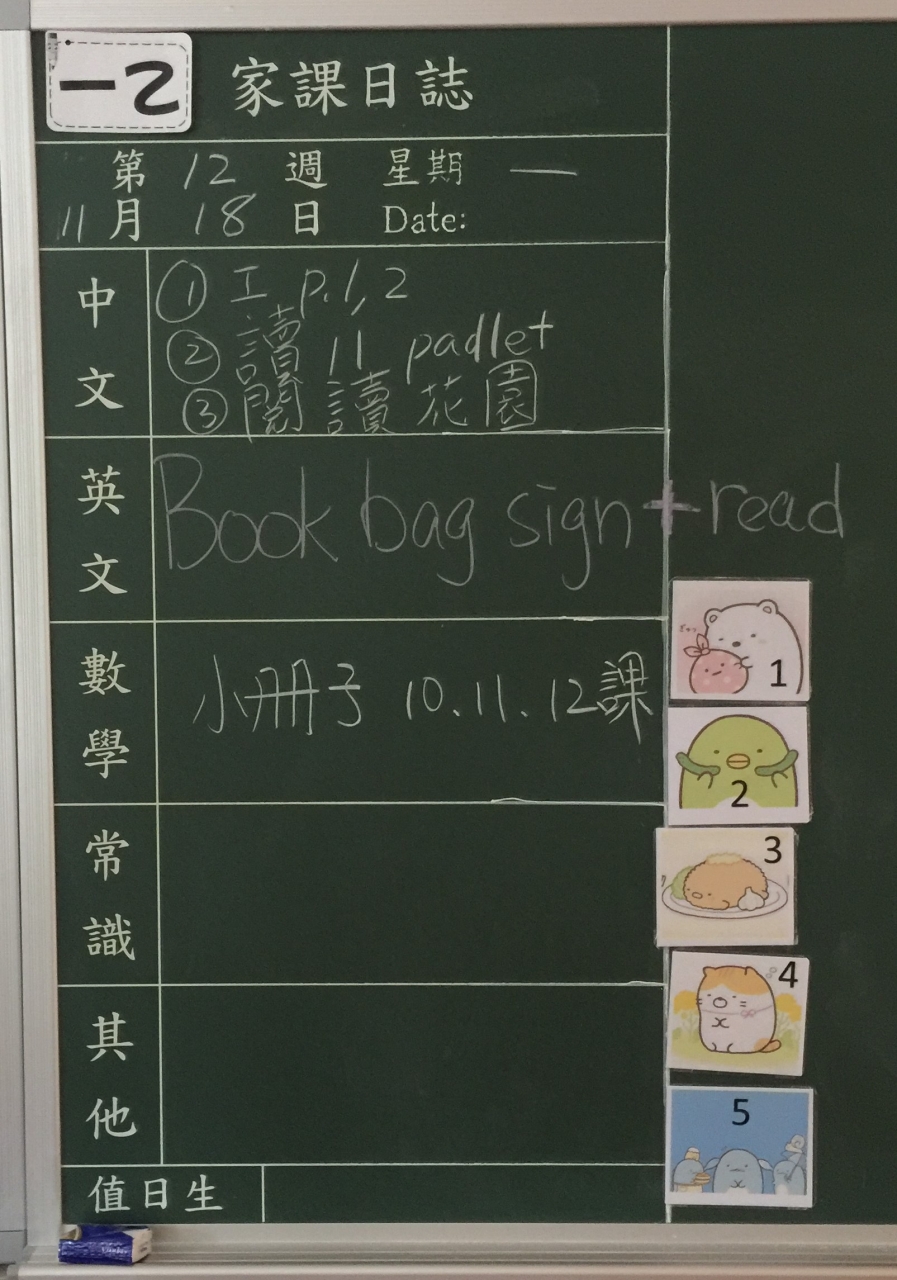 一2 家課日誌
第 12 週 星期 一
11 月 18 日 Date:
中文
① 工 p.1,2
② 讀 11 padlet
③ 閱讀花園
英文
Book bag sign + read
數學
小冊子 10.11.12課
常識
其他
值日生
1
2
3
4
5